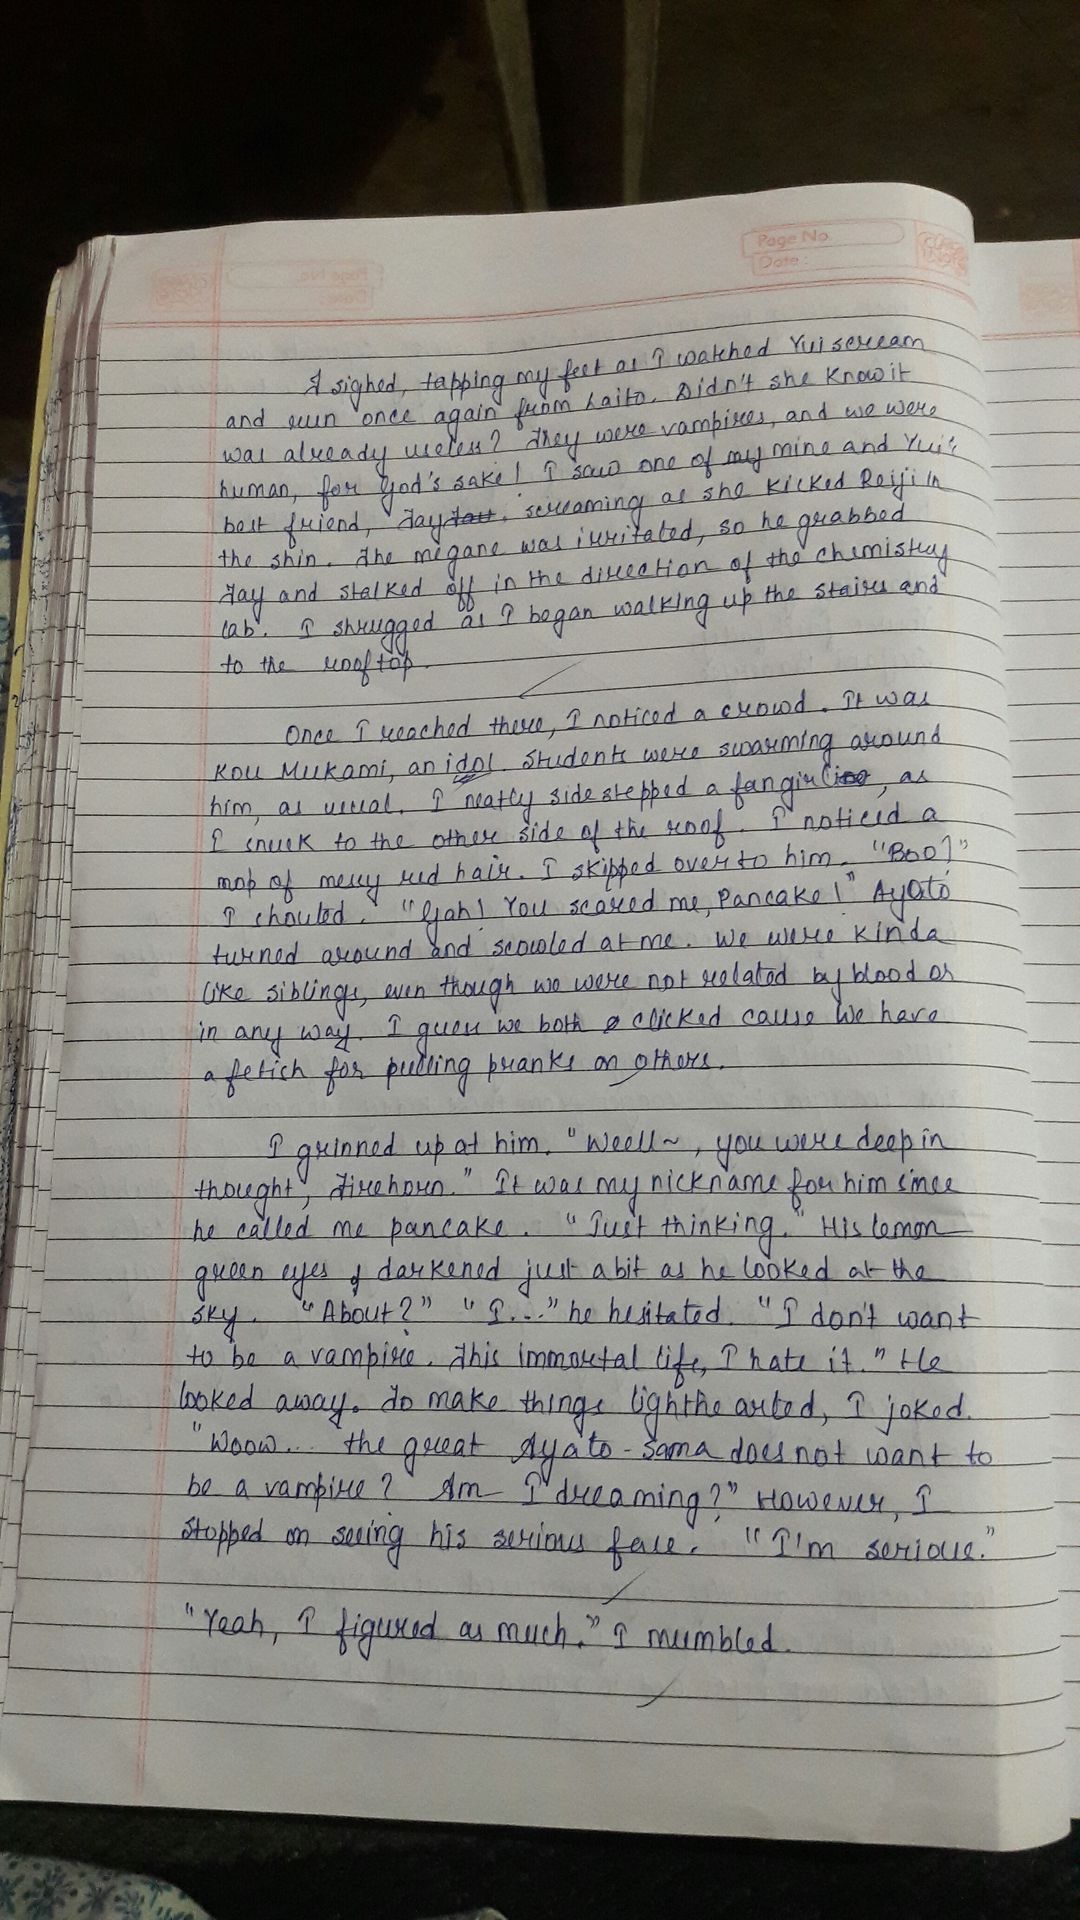 Page No.
Date:
I sighed, tapping my feet as I watched Yui scream
and run once again from Laito. Didn't she know it
was already useless? They were vampires, and we were
human, for God's sake! I saw one of my mine and Yui's
best friend, Jay, screaming as she kicked Reiji in
the shin. The megane was irritated, so he grabbed
Jay and stalked off in the direction of the chemistry
lab. I shrugged as I began walking up the stairs and
to the rooftop.
Once I reached there, I noticed a crowd. It was
Kou Mukami, an idol. Students were swarming around
him, as usual. I neatly sidestepped a fangirl, as
I snuck to the other side of the roof. I noticed a
mop of messy red hair. I skipped over to him. "Boo!"
I shouted. "Gah! You scared me, Pancake!" Ayato
turned around and scowled at me. We were kinda
like siblings, even though we were not related by blood or
in any way. I guess we both clicked cause we have
a fetish for pulling pranks on others.
I grinned up at him. "Weell~, you were deep in
thought, Firehorn." It was my nickname for him since
he called me pancake. "Just thinking." His lemon
green eyes darkened just a bit as he looked at the
sky. "About?" "I..." he hesitated. "I don't want
to be a vampire. This immortal life, I hate it." He
looked away. To make things lighthearted, I joked.
"Woow... the great Ayato-sama does not want to
be a vampire? Am I dreaming?" However, I
stopped on seeing his serious face. "I'm serious."
"Yeah, I figured as much." I mumbled.